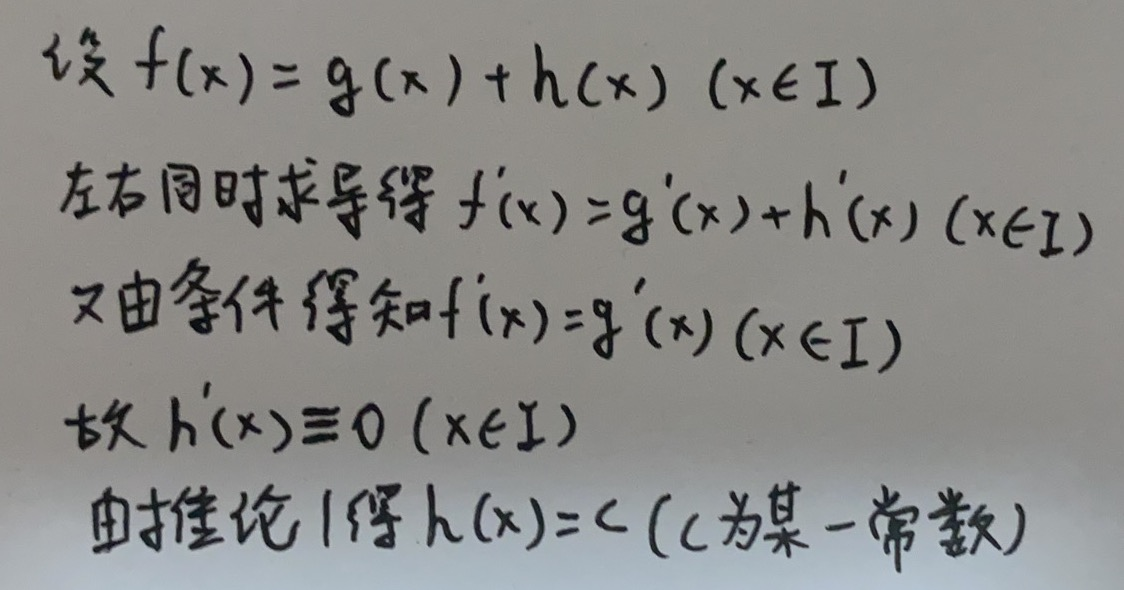 设 f(x) = g(x) + h(x) (x∈I)
左右同时求导得 f'(x) = g'(x) + h'(x) (x∈I)
又由条件得知 f'(x) = g'(x) (x∈I)
故 h'(x) ≡ 0 (x∈I)
由推论1得 h(x) = c (c为某一常数)